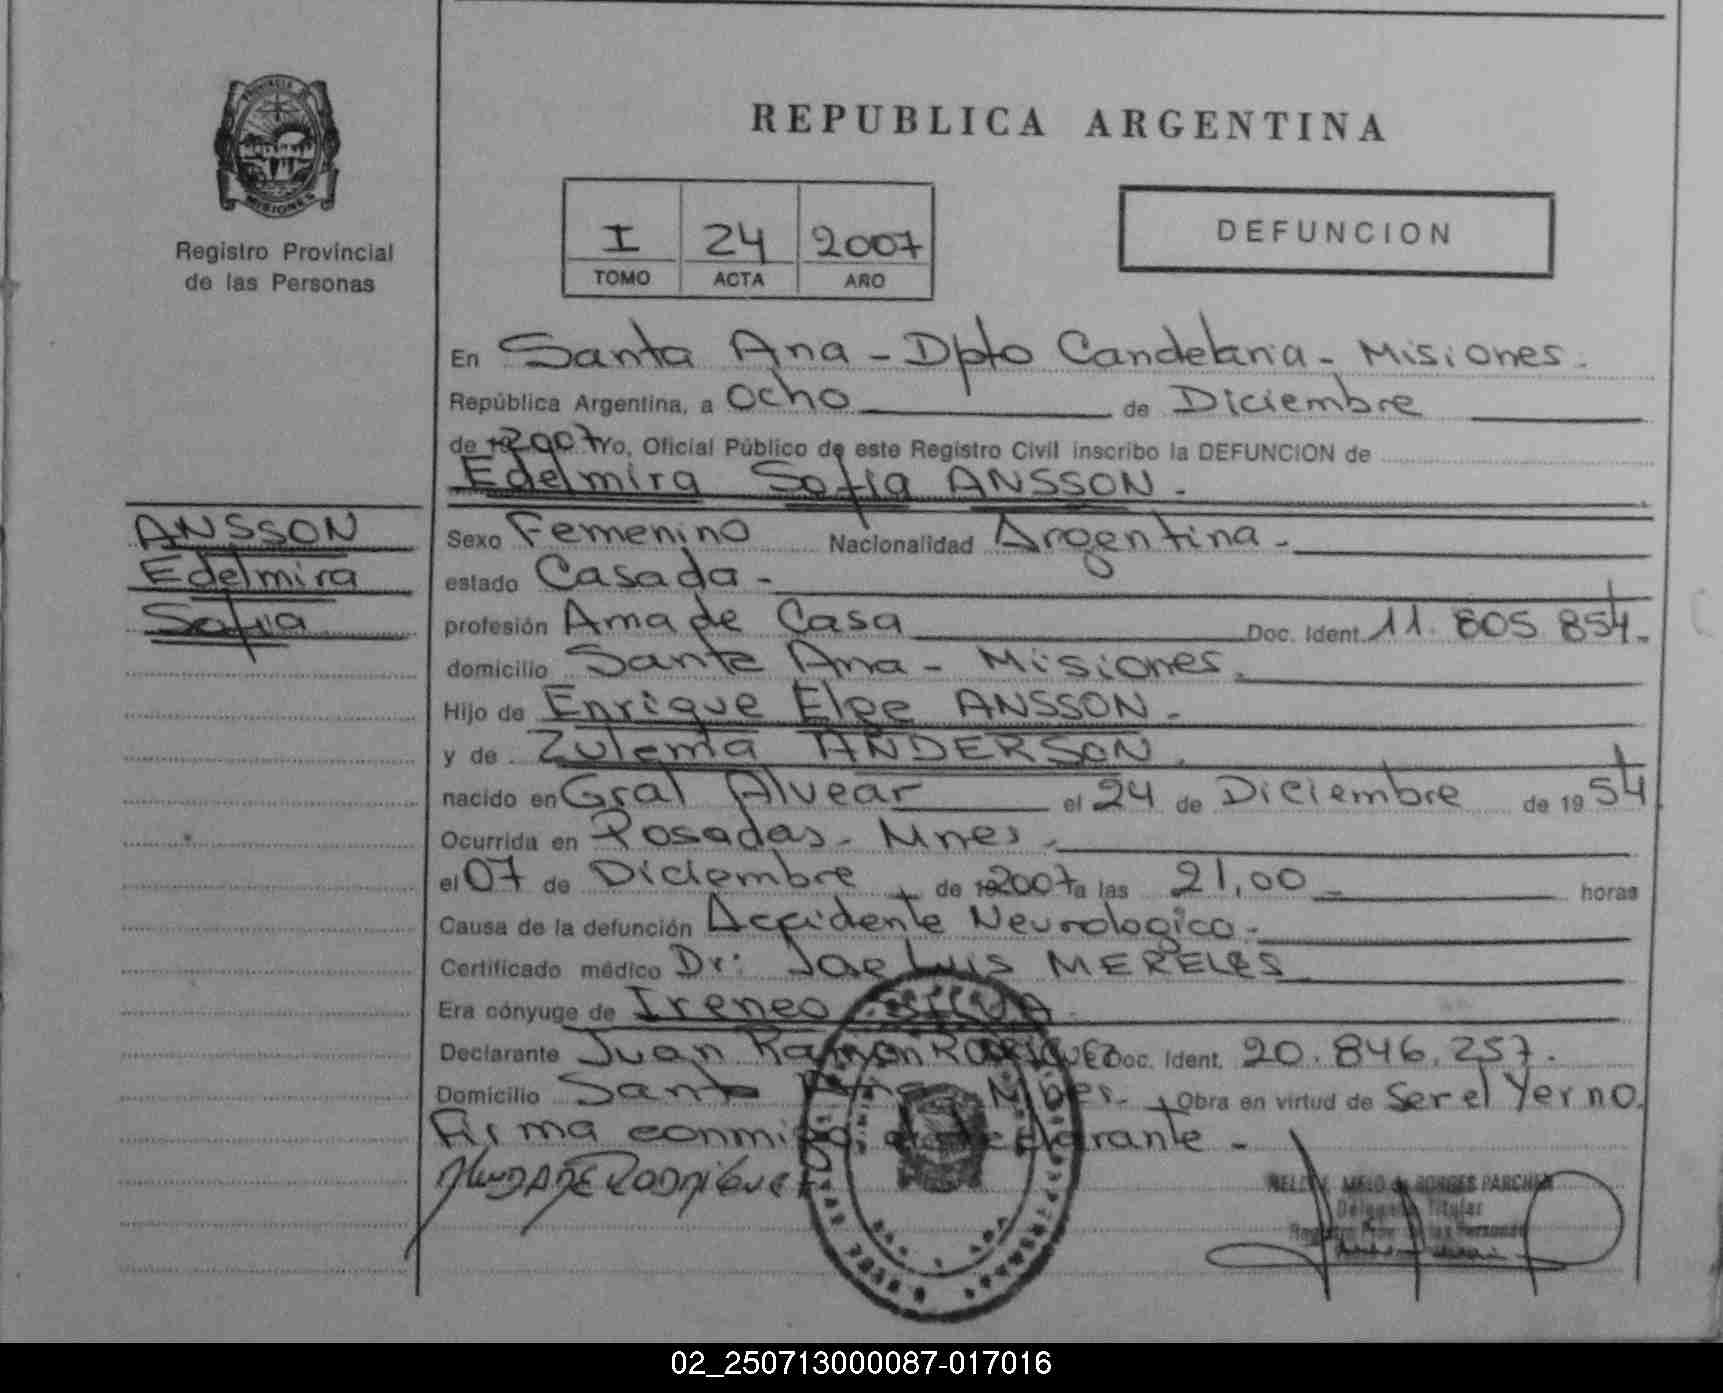 PROVINCIA DE
MISIONES
Registro Provincial
de las Personas
REPUBLICA ARGENTINA
I 24 2007
TOMO ACTA AÑO
DEFUNCION
En Santa Ana - Dpto Candelaria - Misiones.
República Argentina, a Ocho de Diciembre
de 19 2007 Yo, Oficial Público de este Registro Civil inscribo la DEFUNCION de
Edelmira Sofia ANSSON.
ANSSON
Edelmira
Sofia
Sexo Femenino Nacionalidad Argentina.
estado Casada.
profesión Ama de Casa Doc. Ident. 11.805.854.
domicilio Santa Ana - Misiones.
Hijo de Enrique ANSSON.
y de Zulema ANDERSON.
nacido en Gral Alvear el 24 de Diciembre de 1954
Ocurrida en Posadas - Mnes.
el 07 de Diciembre de 19 2007 a las 21,00 horas
Causa de la defunción Accidente Neurologico.
Certificado médico Dr: Jose Luis MERELES
Era cónyuge de Ireneo SILVA.
Declarante Juan Ramon RODRIGUEZ Doc. Ident. 20.846.257.
Domicilio Santa Ana Mnes. Obra en virtud de Ser el Yerno.
Firma conmigo el declarante -
RODRIGUEZ
MELO de BORGES PARCHEN
Delegada Titular
Registro Prov. de las Personas
02_250713000087-017016